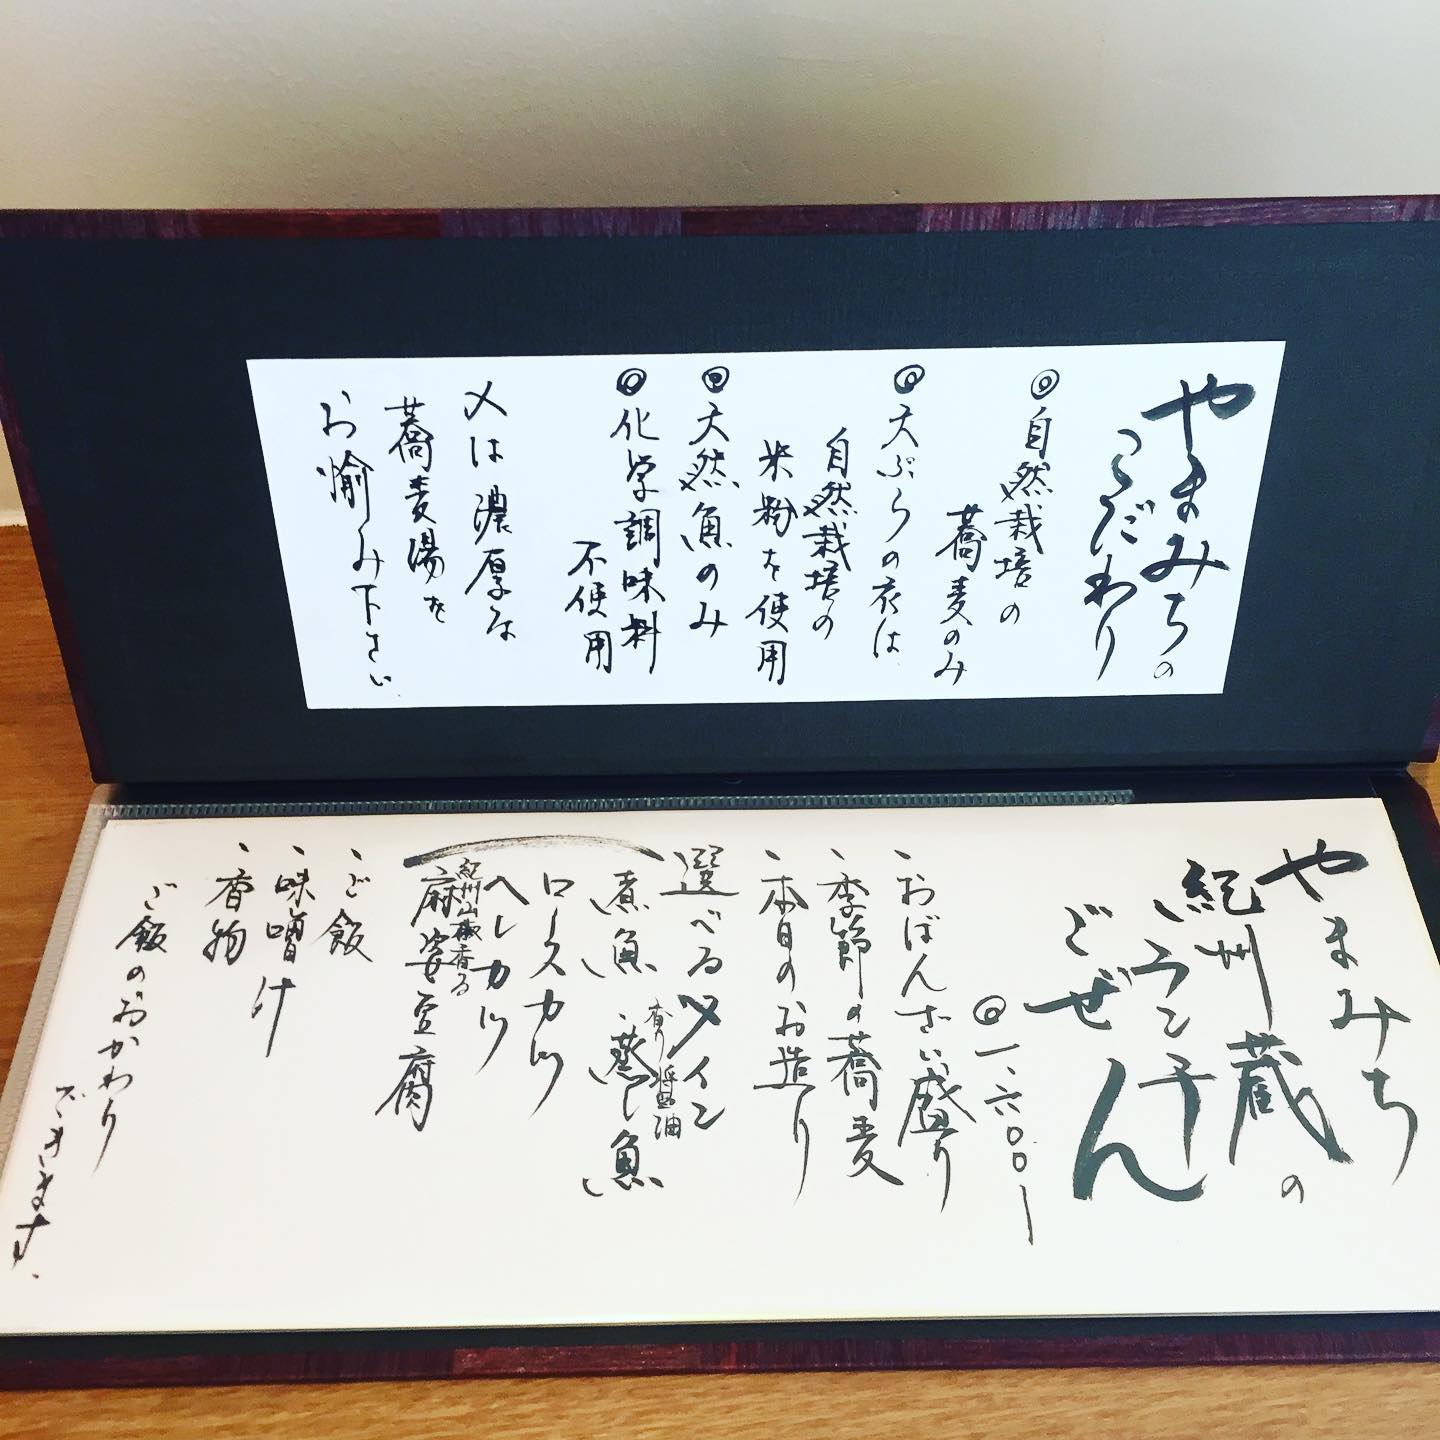 やまみちの
こだわり
◎自然栽培の
蕎麦のみ
◎天ぷらの衣は
自然栽培の
米粉を使用
◎天然魚のみ
◎化学調味料
不使用
〆は濃厚な
蕎麦湯を
お愉み下さい。
やまみち
紀州蔵の
ランチ
ごぜん
@一、六〇〇ー
、おばんざい盛り
、季節の蕎麦
、本日のお造り
選べるメイン
煮魚、香り醤油蒸し魚、
ロースカツ
ヘレカツ
紀州山椒香る
麻婆豆腐
、ご飯
、味噌汁
、香物
ご飯のおかわり
できます。